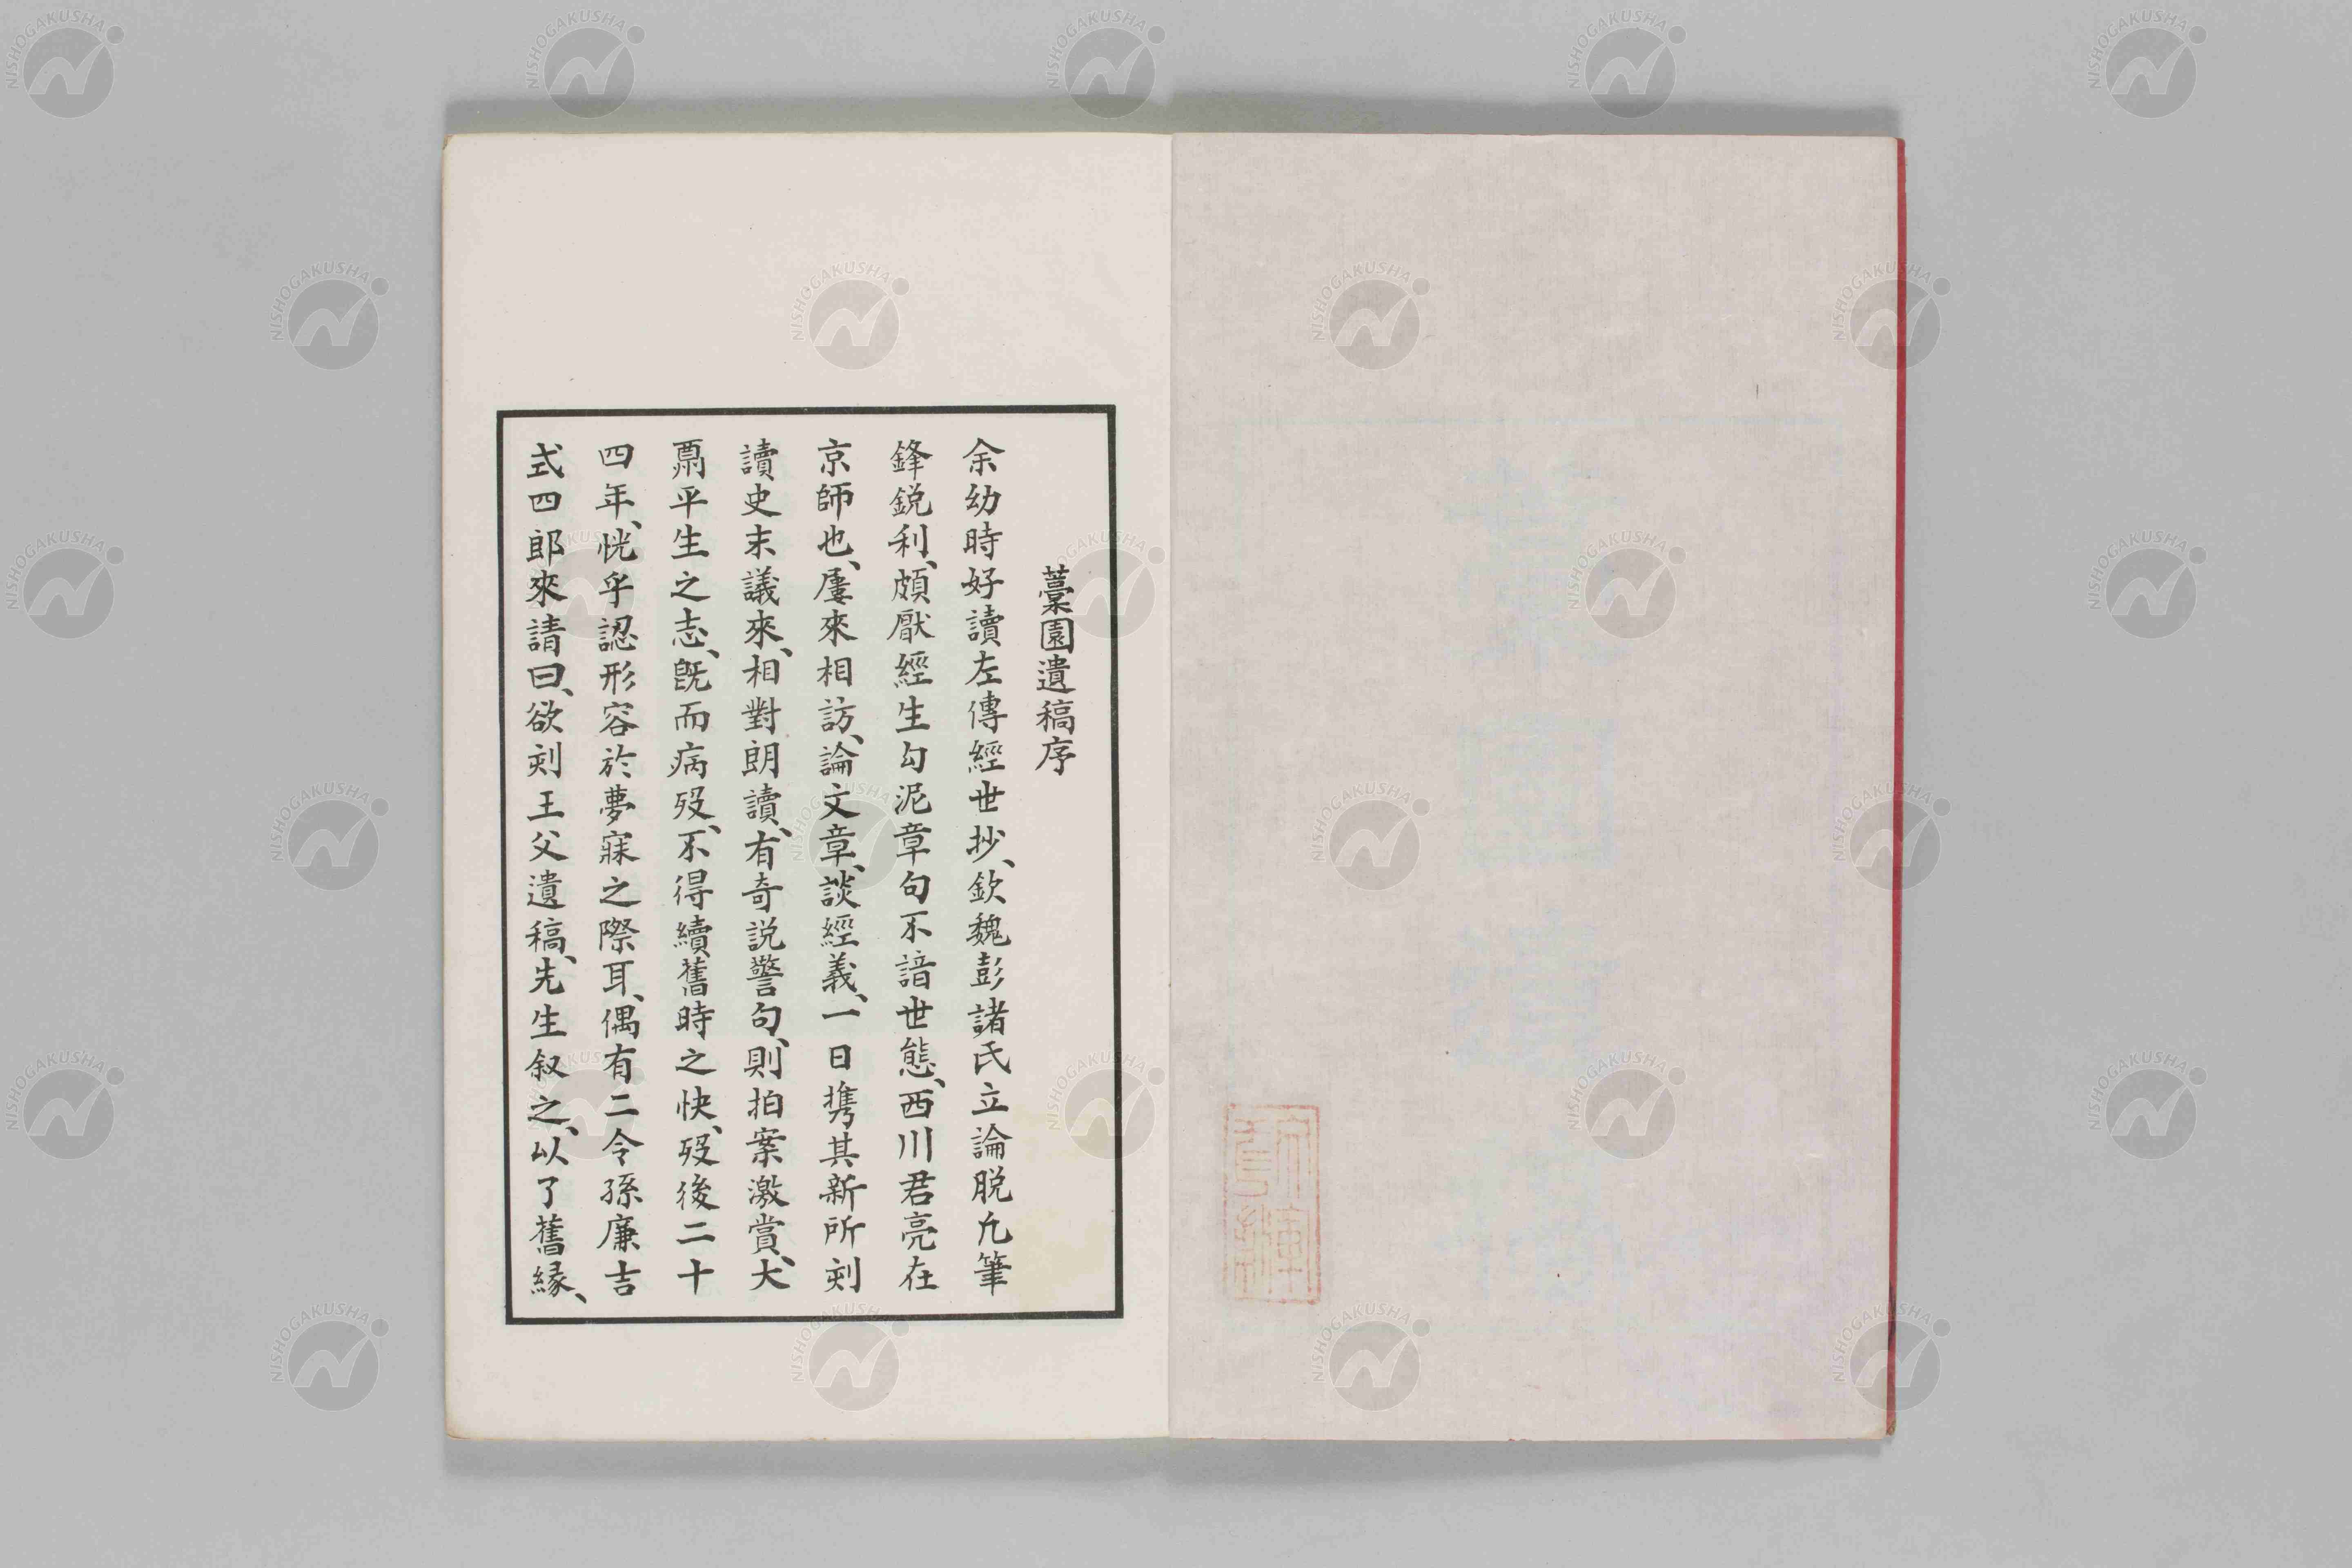 藁園遺稿序
余幼時好讀左傳經世抄、欽魏彭諸氏立論脱凢筆
鋒鋭利、頗厭經生勾泥章句不諳世態、西川君亮在
京師也、屢來相訪、論文章、談經義、一日携其新所刻
讀史末議來、相對朗讀、有奇説警句、則拍案激賞、大
愜平生之志、既而病歿、不得續舊時之快、歿後二十
四年、恍乎認形容於夢寐之際耳、偶有二令孫廉吉
式四郎來請曰、欲刻王父遺稿、先生叙之、以了舊緣、
NISHOGAKUSHA